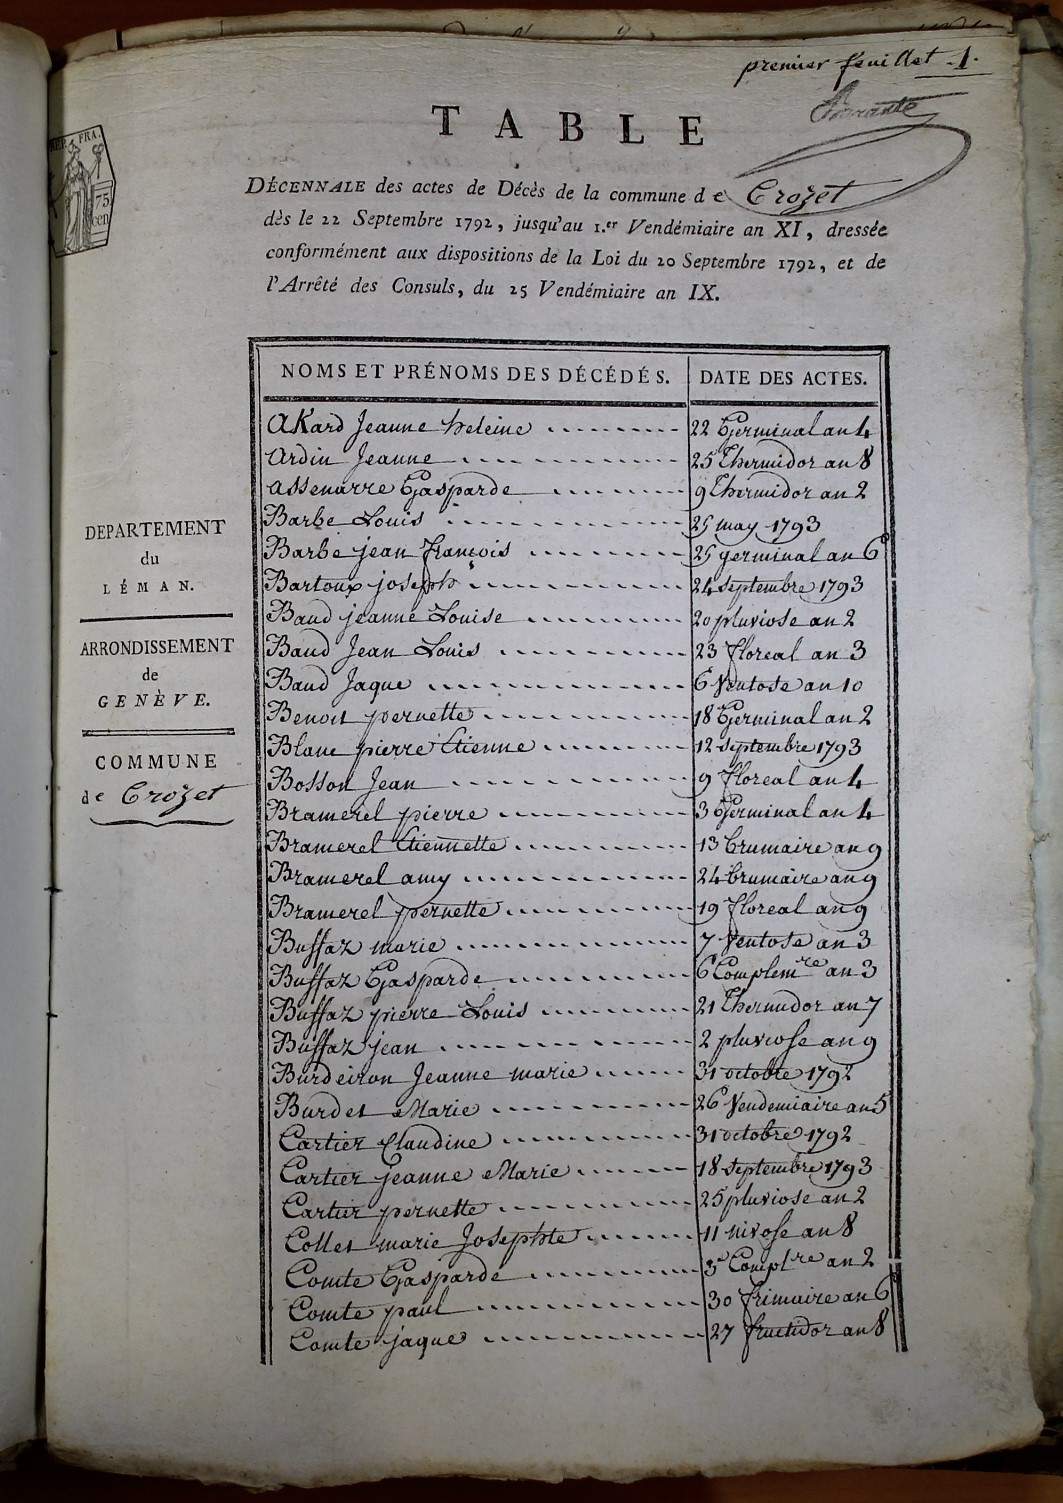 premier feuillet 1.
TABLE
REP. FRA.
75
cen
DÉCENNALE des actes de Décès de la commune de Crozet
dès le 22 Septembre 1792, jusqu'au 1.er Vendémiaire an XI, dressée
conformément aux dispositions de la Loi du 20 Septembre 1792, et de
l'Arrêté des Consuls, du 25 Vendémiaire an IX.
DEPARTEMENT
du
LÉMAN.
ARRONDISSEMENT
de
GENÈVE.
COMMUNE
de Crozet
NOMS ET PRÉNOMS DES DÉCÉDÉS. DATE DES ACTES.
AKard Jeanne heleine 22 Germinal an 4
Ardin Jeanne 25 Thermidor an 8
assenarre Gasparde 9 Thermidor an 2
Barbe Louis 25 may 1793
Barbe jean françois 25 germinal an 6
Bartoux joseph 24 septembre 1793
Baud jeanne Louise 20 pluviose an 2
Baud Jean Louis 23 floreal an 3
Baud Jaque 6 Ventose an 10
Benoit pernette 18 Germinal an 2
Blanc pierre Etienne 12 septembre 1793
Bosson Jean 9 floreal an 4
Bramerel pierre 3 Germinal an 4
Bramerel Etiennette 13 brumaire an 9
Bramerel amy 24 brumaire an 9
Bramerel pernette 19 floreal an 9
Buffaz marie 7 Ventose an 3
Buffaz Gasparde 6 Complem.re an 3
Buffaz pierre Louis 21 Thermidor an 7
Buffaz jean 2 pluviose an 9
Burdeiron Jeanne marie 31 octobre 1792
Burdet Marie 26 Vendemiaire an 5
Cartier Claudine 31 octobre 1792
Cartier jeanne Marie 18 septembre 1793
Cartier pernette 25 pluviose an 2
Collet marie Josephte 11 nivose an 8
Comte Gasparde 3e Compl.re an 2
Comte paul 30 frimaire an 6
Comte jaque 27 fructidor an 8